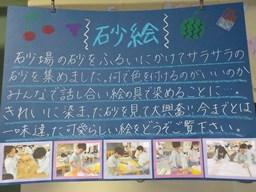 砂絵
砂場の砂をふるいにかけてサラサラの
砂を集めました。何で色を付けるのがいいのか
みんなで話し合い絵の具で染めることに…。
きれいに染また砂を見て大興奮!!今までとは
一味違った可愛らしい絵をどうぞご覧下さい。